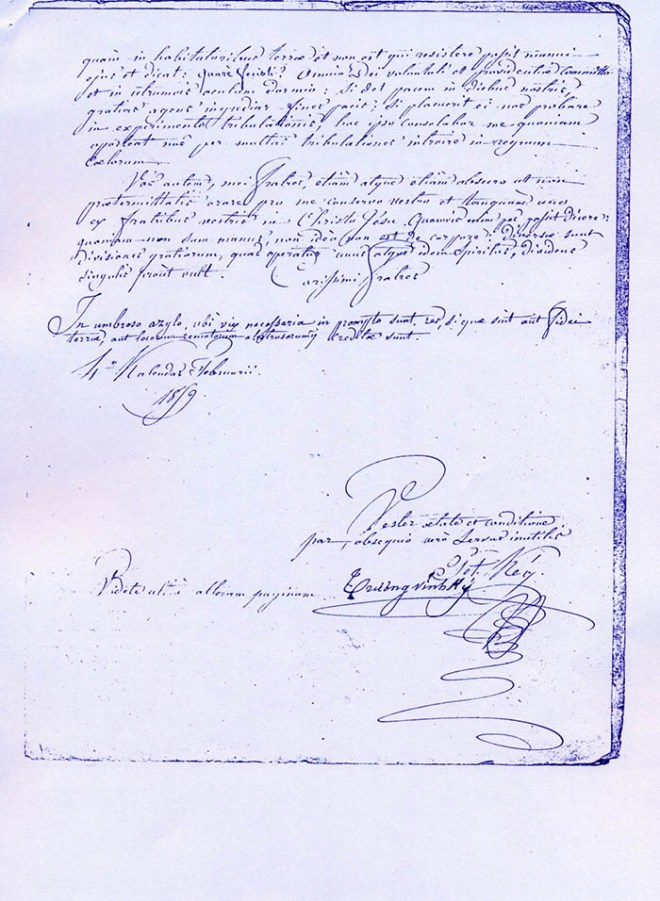 quàm in habitatoribus terræ et non est qui resistere possit manui
ejus et dicat: quarè fecisti? Omnia Dei voluntati et providentiæ committo
et in utramvis aurem dormio: si det pacem in diebus nostris,
gratias agens ingrediar fines pacis; si placuerit ei nos probare
in experimento tribulationis, hac ipsa consolabar me quoniam
oporteat nos per multas tribulationes intrare in regnum
cœlorum.
Vos autem, mei fratres, etiàm atque etiàm obsecro ut non
prætermittatis orare pro me conservo vestro et tanquàm uno
ex fratribus vestris in Christo Jesu. Quamvis oculus pes possit dicere:
quoniam non sum manus, non ideò non est de corpore: Diversæ sunt
divisiones gratiarum, quas operatur unus atque idem Spiritus, dividens
singulis prout vult.
Carissimi fratres
In umbroso azylo, ubi vix necessaria in promptu sunt res, si quæ sint aut fidei
terræ, aut locorum remotorum abstrusorumq creditæ sunt.
4° Kalendas Februarii.
1859.
Vester ætate et conditione
par, obsequio verò servus inutilis
Pet. Ký
Trương Vĩnh Ký
Videte ult. alteram paginam